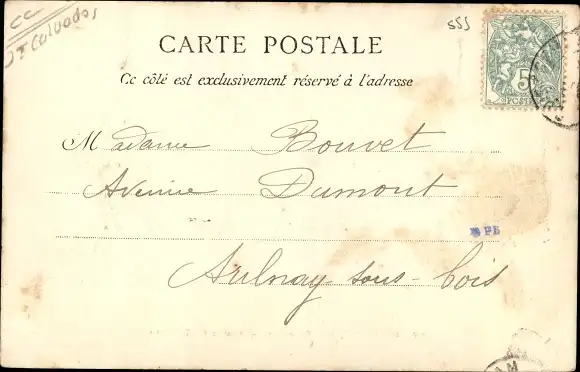 CC
DT Calvados
555
CARTE POSTALE
Ce côté est exclusivement réservé à l'adresse
5
POSTES
Madame Bouvet
Avenue Dumont
PB
Aulnay-sous-bois
AM